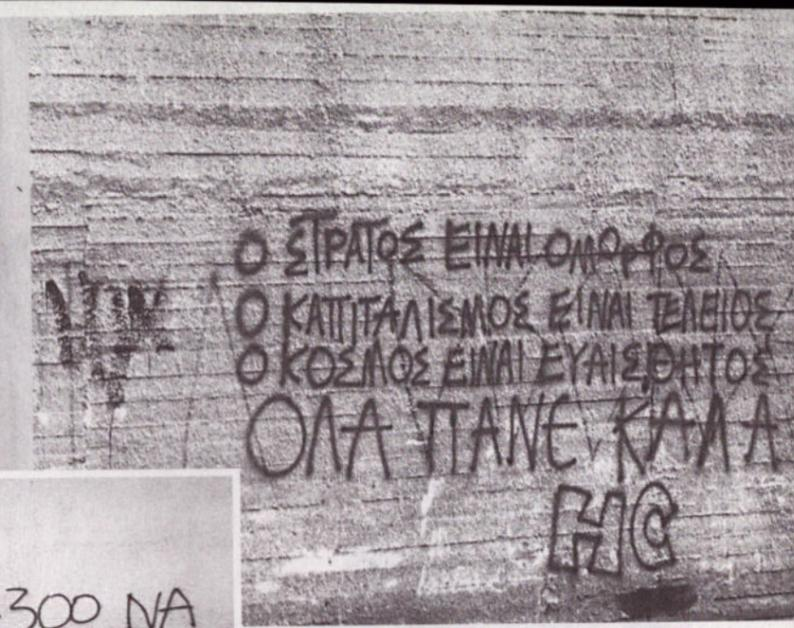 Ο ΣΤΡΑΤΟΣ ΕΙΝΑΙ ΟΜΟΡΦΟΣ
Ο ΚΑΠΙΤΑΛΙΣΜΟΣ ΕΙΝΑΙ ΤΕΛΕΙΟΣ
Ο ΚΟΣΜΟΣ ΕΙΝΑΙ ΕΥΑΙΣΘΗΤΟΣ
ΟΛΑ ΠΑΝΕ ΚΑΛΑ
HC
300 ΝΑ